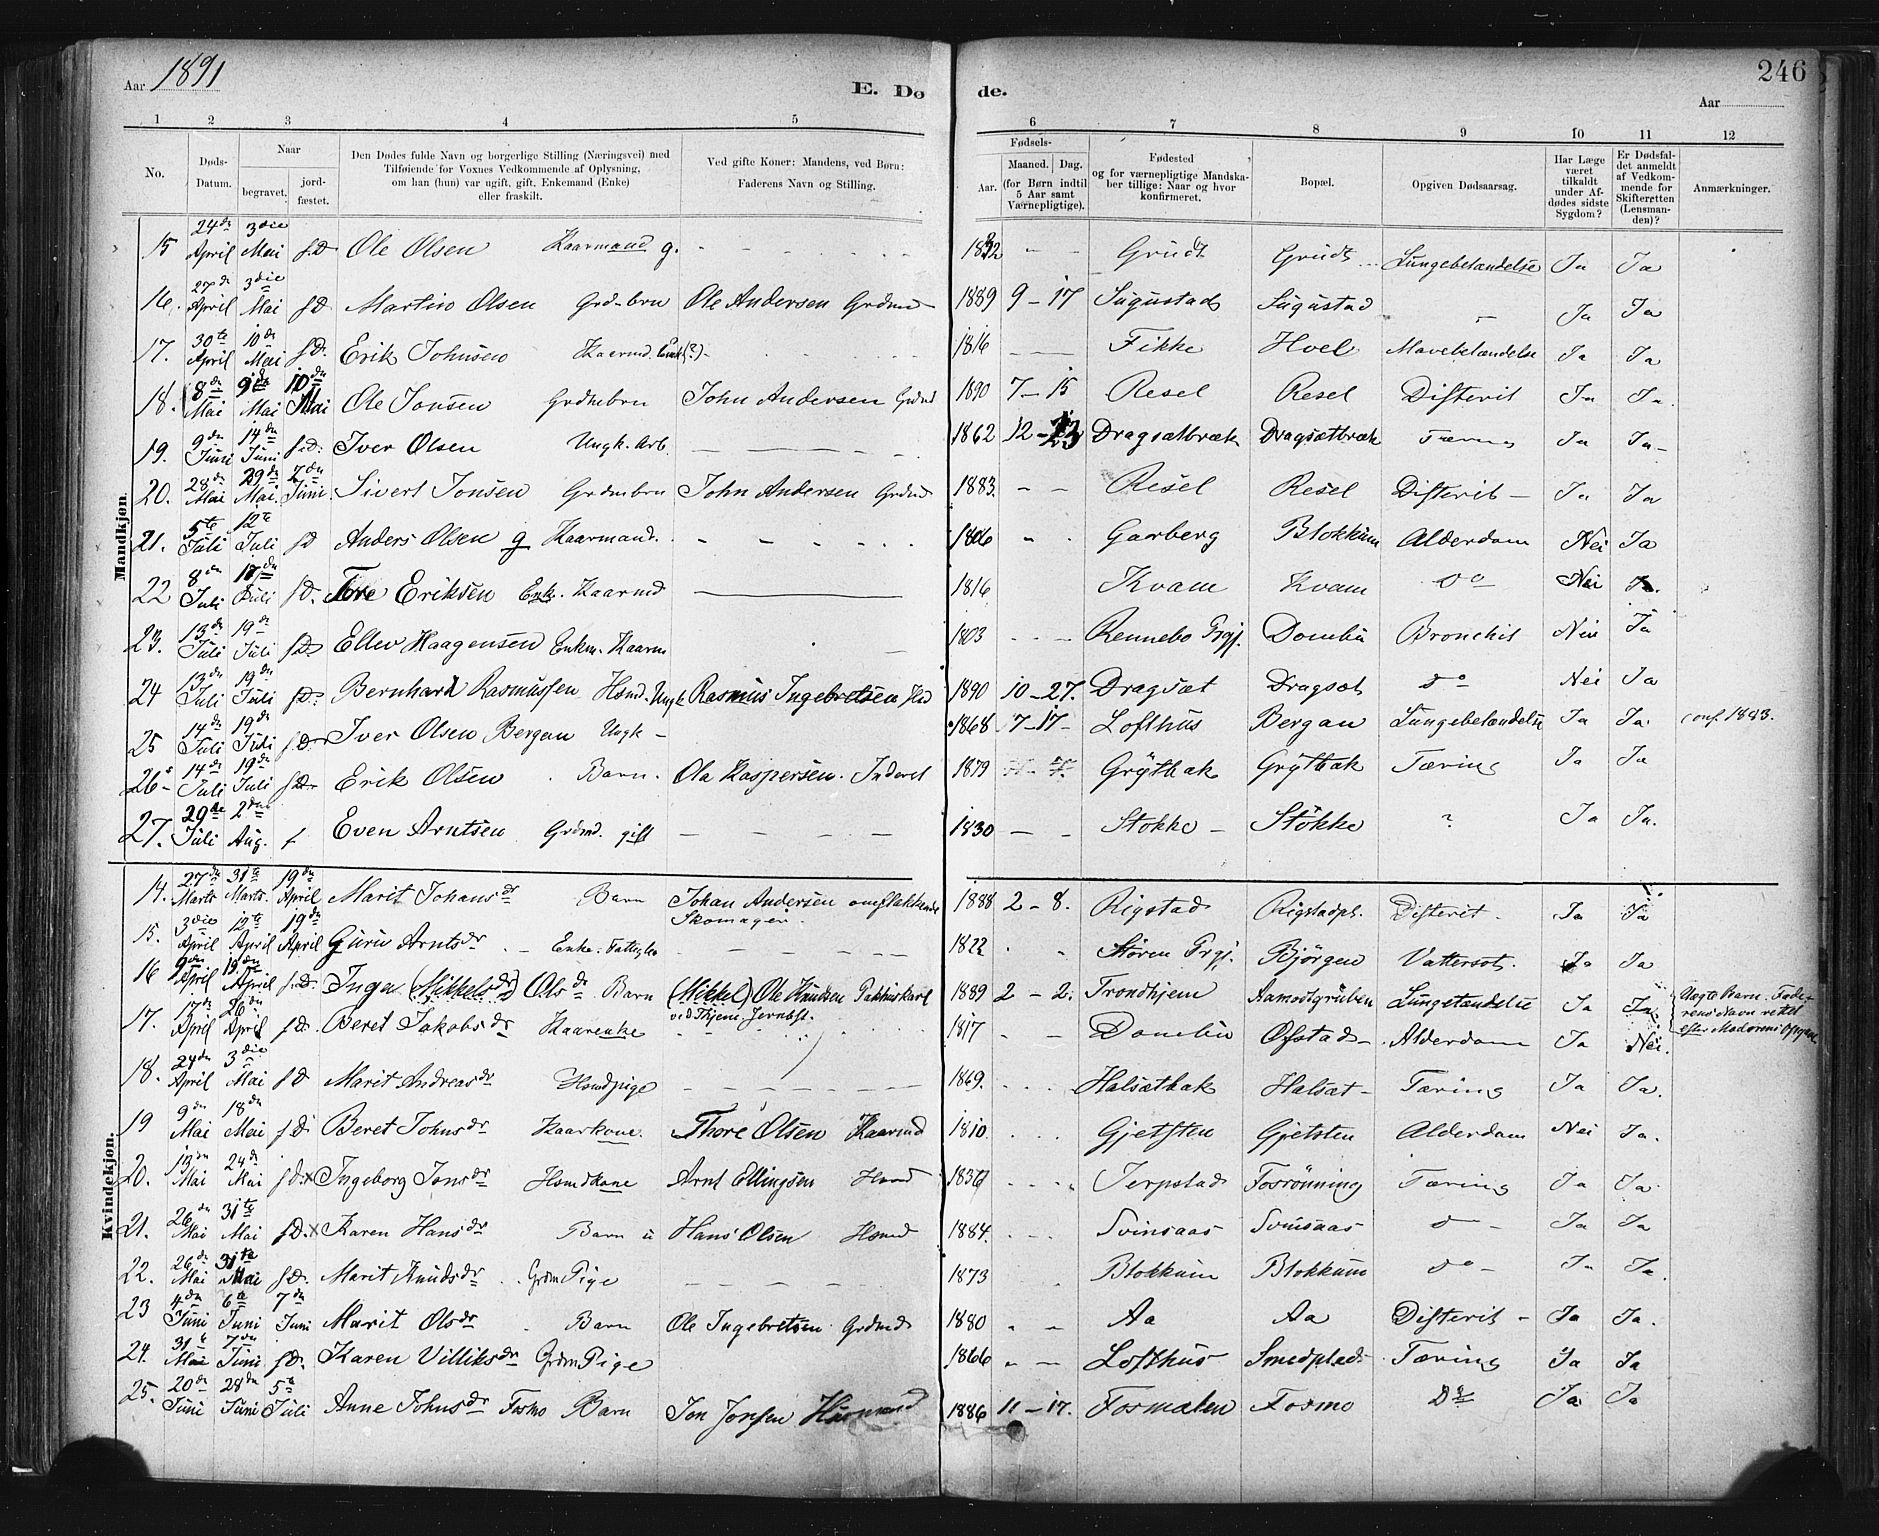 Aar 1891
E. Dø de.
246
Aar
1 2 3 4 5 6 7 8 9 10 11 12
No.
Døds-Datum.
Naar
begravet.
jord-fæstet.
Den Dødes fulde Navn og borgerlige Stilling (Næringsvei) med Tilføiende for Voxnes Vedkommende af Oplysning, om han (hun) var ugift, gift, Enkemand (Enke) eller fraskilt.
Ved gifte Koner: Mandens, ved Børn: Faderens Navn og Stilling.
Fødsels-
Aar.
Maaned. Dag.
(for Børn indtil 5 Aar samt Værnepligtige).
Fødested og for værnepligtige Mandskaber tillige: Naar og hvor konfirmeret.
Bopæl.
Opgiven Dødsaarsag.
Har Læge været tilkaldt under Afdødes sidste Sygdom?
Er Dødsfaldet anmeldt af Vedkommende for Skifteretten (Lensmanden)?
Anmærkninger.
Mandkjøn.
15 24de April 3die Mai f.D. Ole Olsen Kaarmand g. Grudt Grudt Lungebetændelse Ja Ja
16. 27de April 3die Mai f.D. Martin Olsen Grdmbrn Ole Andersen Grdmd 1889 9-17 Sugustad Sugustad Ja Ja
17. 30te April 10de Mai f.D. Erik Johnsen Kaarmd. Enk(?) 1816 Fikke Hoel Mavebetændelse Ja Ja
18. 8de Mai 9de Mai 10de Mai Ole Jonsen Grdmbrn John Andersen Grdmd 1890 7-15 Resel Resel Difterit Ja Ja.
19. 9de Juni 14de Juni f.D. Iver Olsen Ungk. Arb. 1862 12-23 Dragsætbræk Dragsætbræk Tæring Ja Ja
20. 28de Mai 29de Mai 2den Juni Sivert Jonsen Grdmbrn John Andersen Grdmd 1883. Resel Resel Difterit Ja Ja
21. 5te Juli 12te Juli f.D Anders Olsen g Kaarmand. 1806 Garberg Blokkum Alderdom Nei Ja
22 8de Juli 17de Juli f.D. Tore Eriksen Enk. Kaarmd 1816 Kvam Kvam do Nei Ja.
23. 13de Juli 19de Juli f.D. Ellev Haagensen Enkm. Kaarm 1803 Rennebo Prgj. Dombu Bronchit Nei Ja
24 13de Juli 19de Juli f.D. Bernhard Rasmussen Hsmd. Ungk Rasmus Ingebretsen 1890 10-27. Dragsæt Dragsæt do Nei Ja
25 14de Juli 19de Juli f.D. Iver Olsen Bergan Ungk 1868 7-17 Lofthus Bergan Lungebetændelse Ja Ja. conf. 1883.
26 14de Juli 19de Juli f.D. Erik Olsen Barn. Ola Kaspersen. Inderst 1879 Grytbak Grytbak Tæring Ja Ja
27. 29de Juli 2den Aug. f Even Arntsen Grdmd. gift 1830 Stokke Stokke ? Ja Ja.
Kvindekjøn.
14. 27de Marts 31te Marts. 19de April Marit Johansdr Barn Johan Andersen omflakkende Skomager. 1888 2-8. Rigstad Rigstadpl. Difterit. Ja Ja
15. 3die April 12te April 19de April Guru Arntsdr Enke. Fattiglem 1822 Støren Prgj. Bjørgen Vattersot. Ja Ja
16 9de April April f.D. Inga (Mikkelsdr) Olsdr Barn (Mikkel) Ole Knudsen Pakhuskarl ved Thjem. Jernbst. 1889 2-2. Trondhjem Aamodtgruben Lungetændelse Ja Ja. Uægte Barn. Faderens Navn rettet efter Moderens Opgave
17. 17de April 26de April f.D. Beret Jakobsdr Kaarenke 1817 Dombu Øfstad Alderdom Ja Nei.
18. 24de April 3die Mai f.D Marit Andreasdr Hsmdpige 1869. Halsætbak Halsæt Tæring Ja Ja.
19 9de Mai 18de Mai f.D. Beret Johnsdr Kaarkone. Thore Olsen Kaarmd 1810. Gjetsten Gjetsten Alderdom Nei Ja.
20. 13de Mai 24de Mai f.D. Ingeborg Jonsdr Hsmdkone Arnt Ellingsen Hsmd 1836 Jerpstad Fosrønning Tæring Ja Ja.
21. 26de Mai 31te Mai f.D. Karen Hansdr Barn Hans Olsen Hsmd 1884. Svinsaas Svinsaas do Ja Ja
22. 26de Mai 31te Mai f.D. Marit Knudsdr Grdm Pige 1873 Blokkum Blokkum do Ja Ja.
23 4de Juni 6te Juni 7de Juni Marit Olsdr Barn Ole Ingebretsen Grdmd 1880 Aa Aa Difterit Ja Ja.
24. 31te Mai 7de Juni f.D. Karen Villiksdr Grdm Pige 1866 Lofthus Smedplads Tæring Ja Ja
25. 20de Juni 28de Juni 5te Juli Anne Johnsdr Fosmo Barn Jon Jonsen Husmand 1886 11-17. Fosmoten Fosmo Do Ja Ja